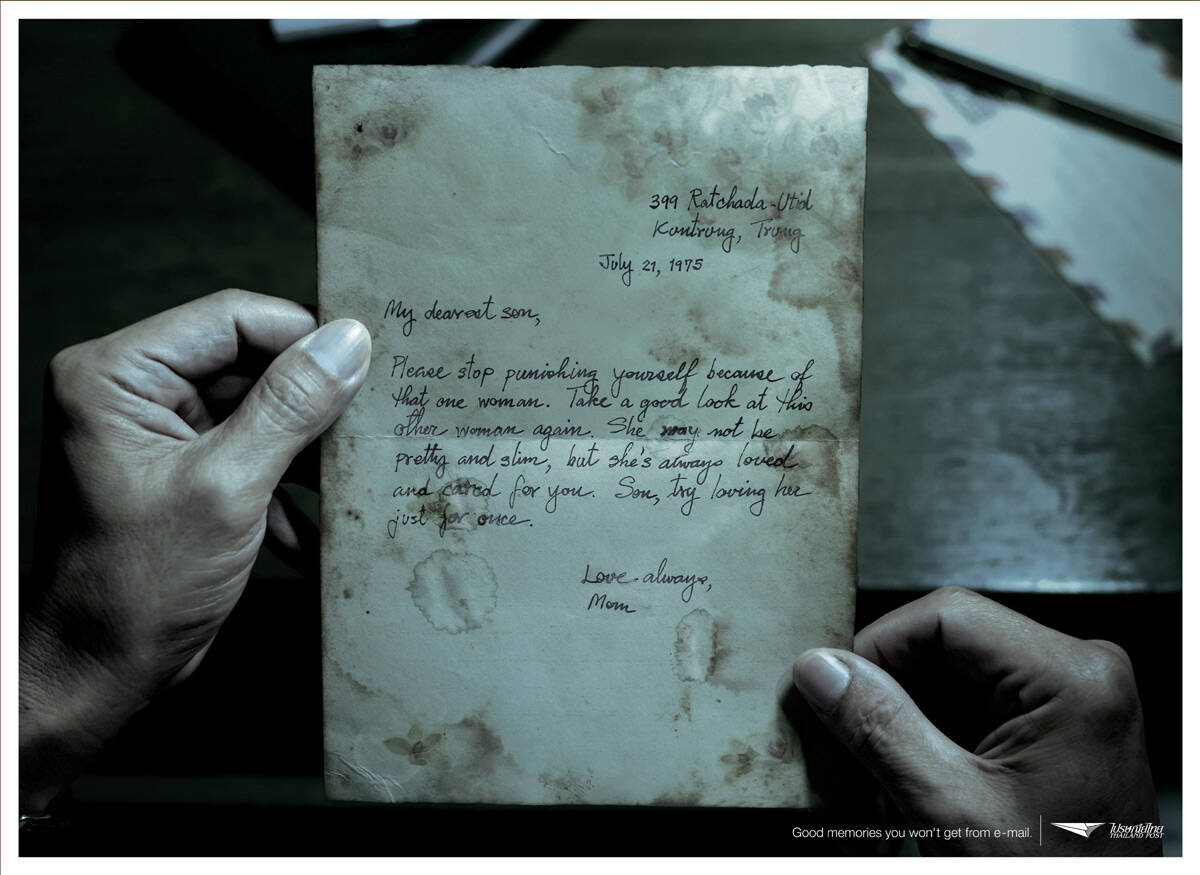 399 Ratchada-Utid
Kantrang, Trang
July 21, 1975
My dearest son,
Please stop punishing yourself because of
that one woman. Take a good look at this
other woman again. She may not be
pretty and slim, but she's always loved
and cared for you. Son, try loving her
just for once.
Love always,
Mom
Good memories you won't get from e-mail.
ไปรษณีย์ไทย
THAILAND POST